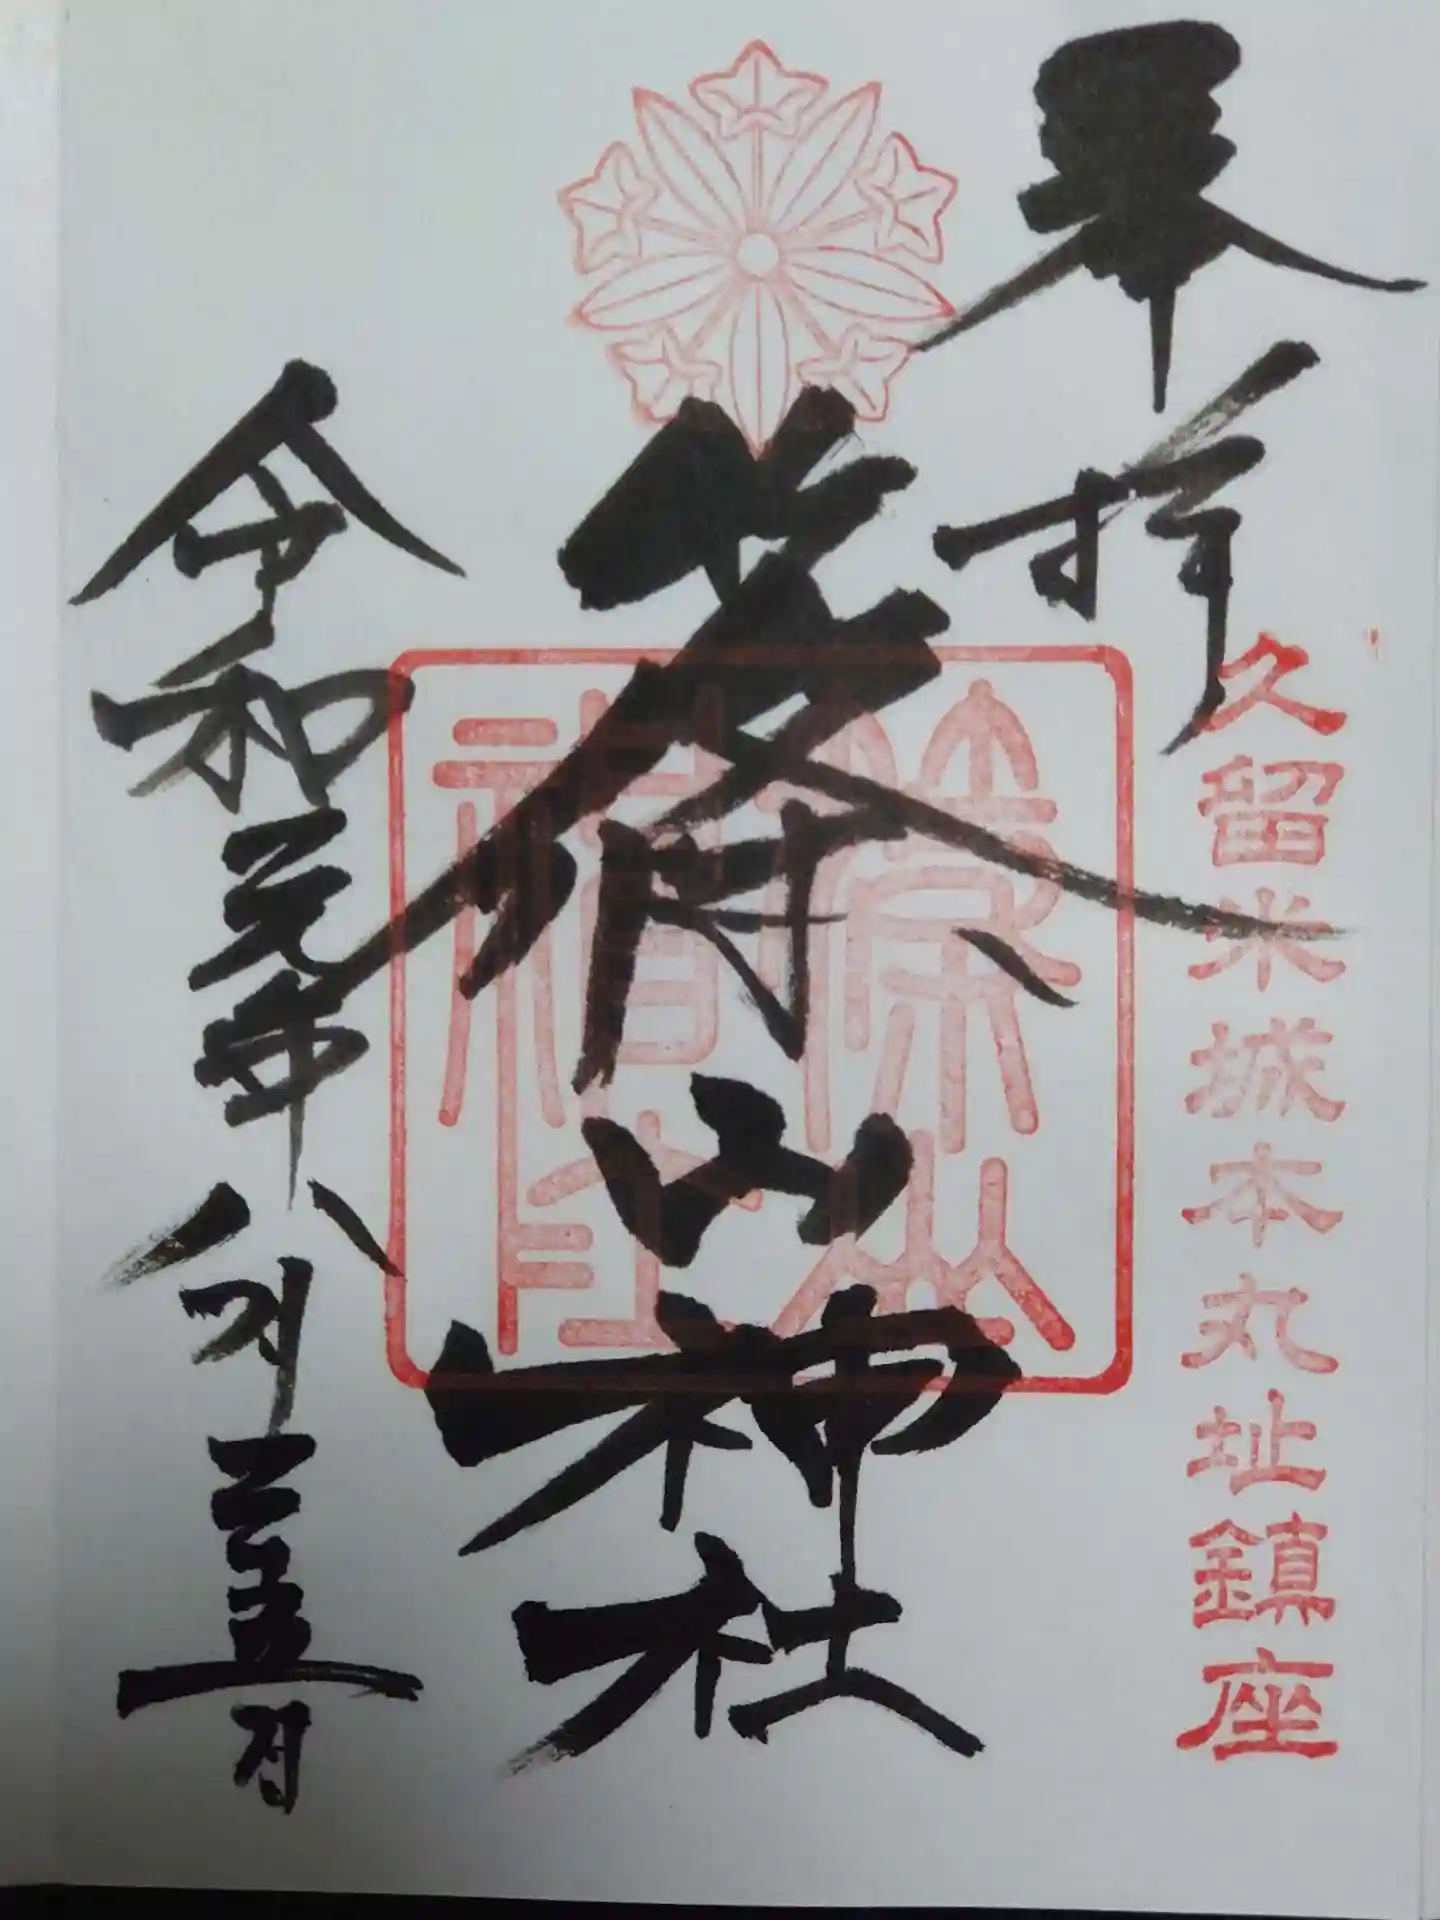 奉拝
久留米城本丸址鎮座
篠山神社
篠山神社
令和元年八月二五日